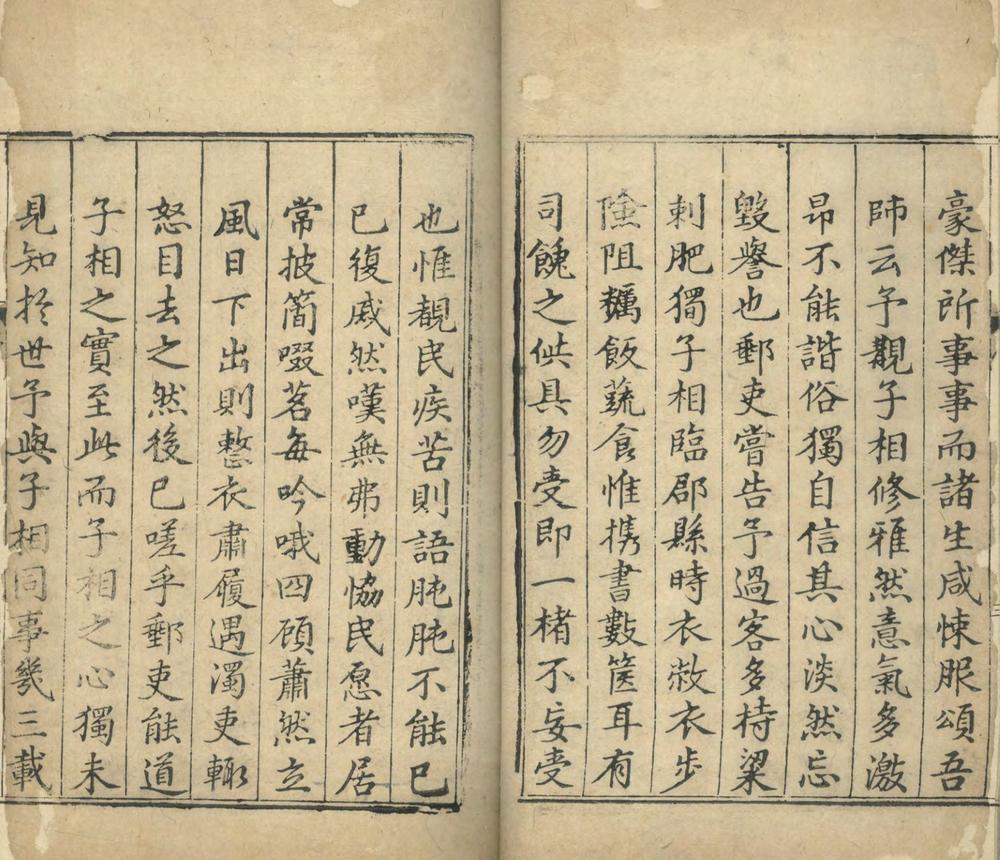 豪傑所事事而諸生咸悚服頌吾
師云予覩子相修雅然意氣多激
昂不能諧俗獨自信其心淡然忘
毀譽也郵吏嘗告予過客多持粱
刺肥獨子相臨郡縣時衣敝衣步
險阻糲飯蔬食惟攜書數篋耳有
司餽之供具勿受即一楮不妄受
也惟覩民疾苦則語肫肫不能已
已復戚然嘆無弗動恊民愿者居
常披簡啜茗每吟哦四顧蕭然立
風日下出則整衣肅履遇濁吏輙
怒目去之然後已嗟乎郵吏能道
子相之實至此而子相之心獨未
見知於世予與子相同事幾三載